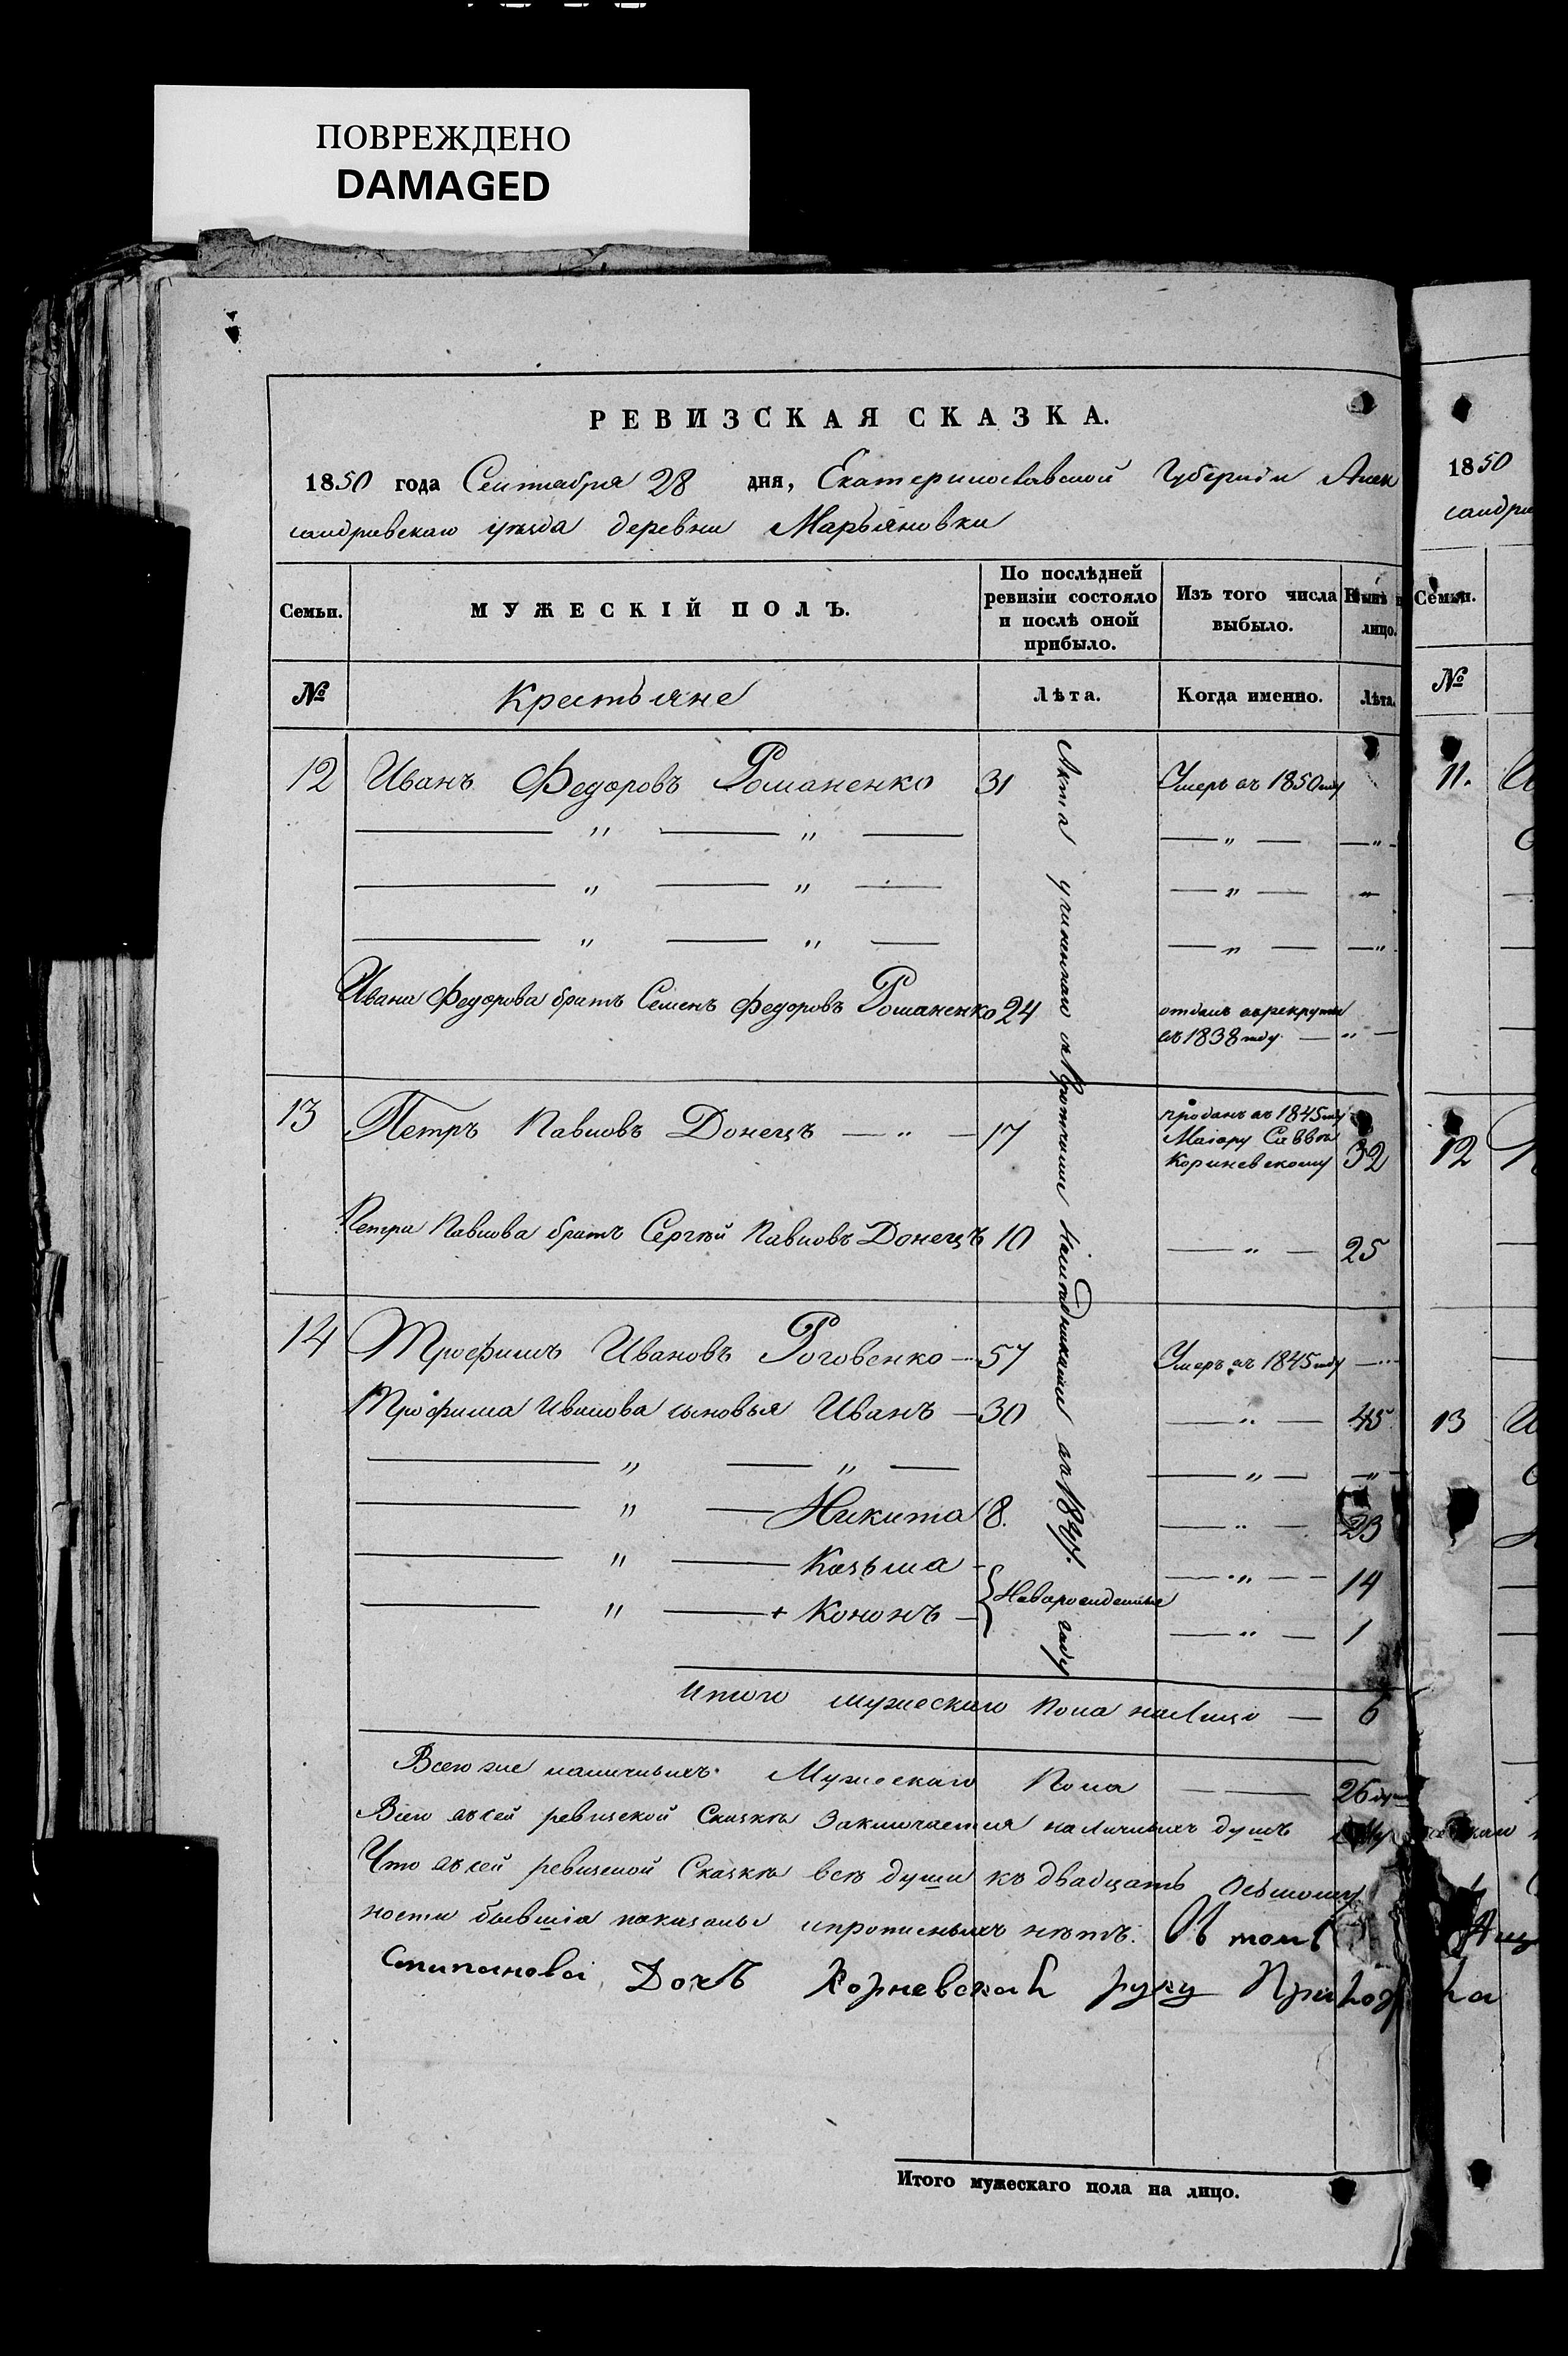 ПОВРЕЖДЕНО
DAMAGED
РЕВИЗСКАЯ СКАЗКА.
1850 года Сентября 28 дня, Екатеринославской Губернiи Алек
сандровскаго уѣзда деревни Марьяновки
Семьи.
МУЖЕСКІЙ ПОЛЪ.
По послѣдней
ревизіи состояло
и послѣ оной
прибыло.
Изъ того числа
выбыло.
Нынѣ
лицо.
№
Крестьяне
Лѣта.
Когда именно.
Лѣта.
12 Иванъ Федоровъ Романенко 31 Умеръ въ 1850 году
— „ — „ — — „ — — „ -
— „ — „ — — „ — — „ —
— „ — „ — — „ — — „
Ивана Федорова братъ Семенъ Федоровъ Романенко 24 отданъ въ рекруты
въ 1838 году — „ —
13 Петръ Павловъ Донецъ — „ — 17 проданъ въ 1845 году
Маіору Саввѣ
Корневскому 32
Петра Павлова братъ Сергѣй Павловъ Донецъ 10 — „ — 25
14 Трофимъ Ивановъ Роговенко — 57 Умеръ въ 1845 году —
Трофима Иванова сыновья Иванъ — 30 — „ — 45
— „ — „ — — „ — — „ —
— „ — Никита 8. — „ — 23
— „ — Козьма - — „ — 14
— „ — + Кононъ — { Новорожденные — „ — 1
Итого мужескаго пола налицо — 6
Всего же наличныхъ Мужескаго Пола — 26
Всего въ сей ревизской Сказкѣ Заключается наличныхъ душъ
Что въ сей ревизской Сказкѣ всѣ души къ двадцать
ности бывшіа показаны и прописныхъ нѣтъ. В томъ
Степанова Дочь Корневская руку Прилож ла
Итого мужескаго пола на лицо.
1850
сандро
Семьи.
№
11.
12
13